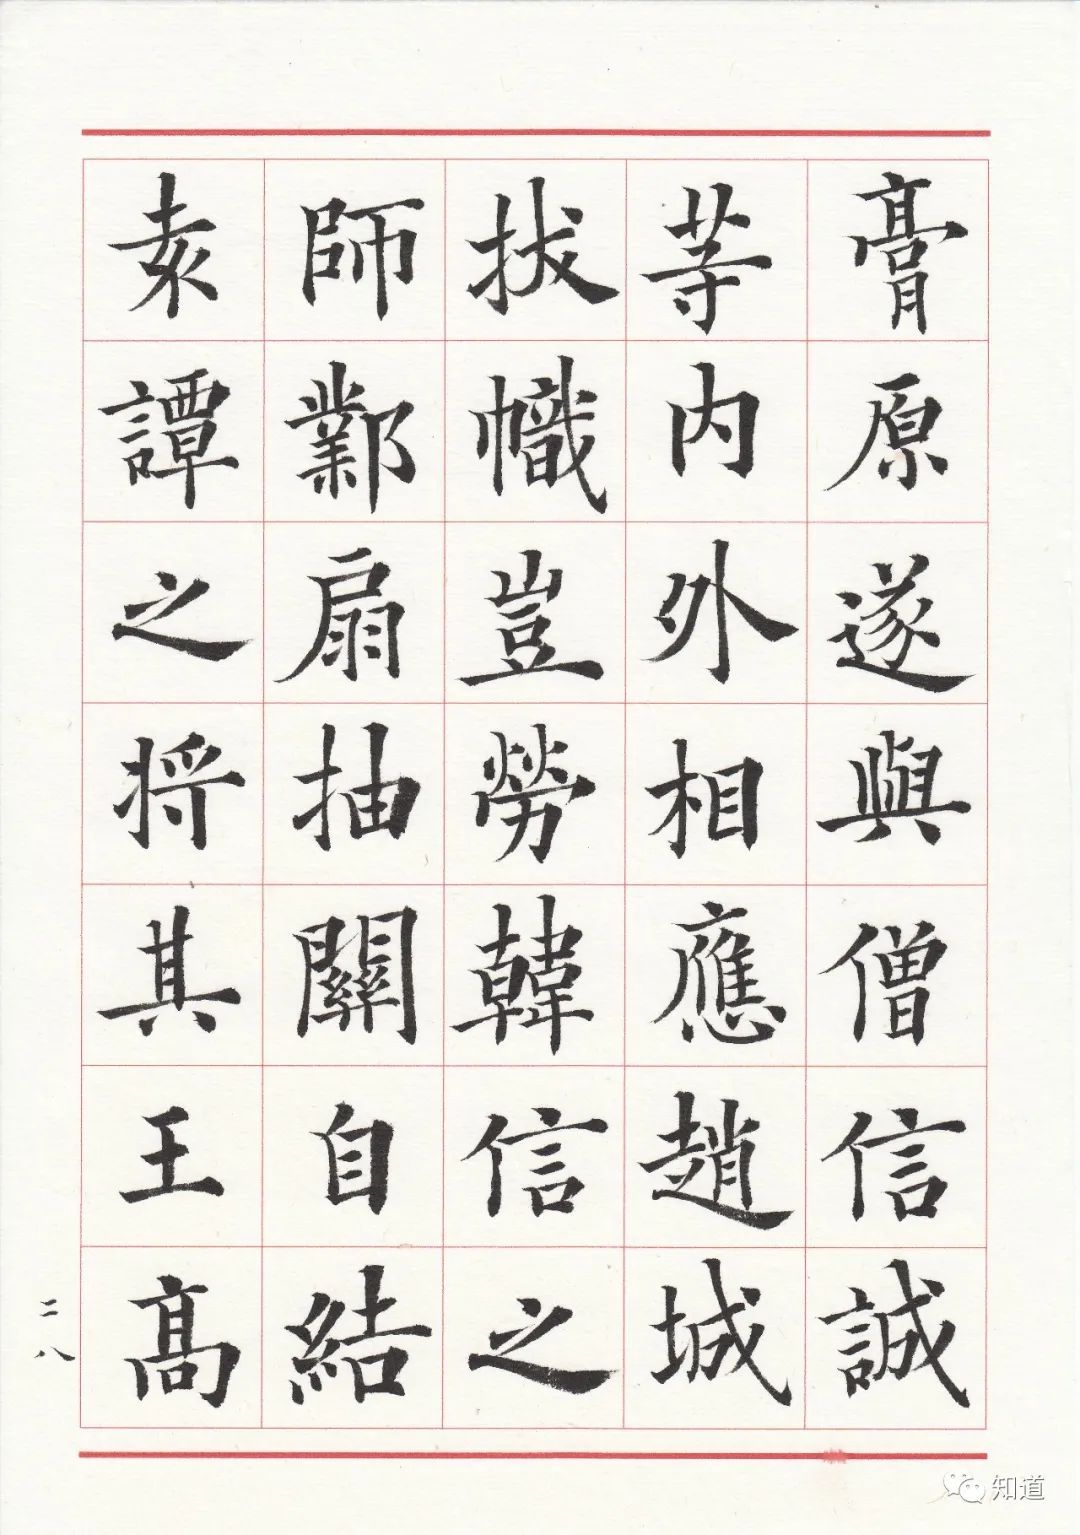 膏原遂與僧信誠
等内外相應趙城
拔幟豈勞韓信之
師鄴扇抽關自結
袁譚之将其王高
二八
知道